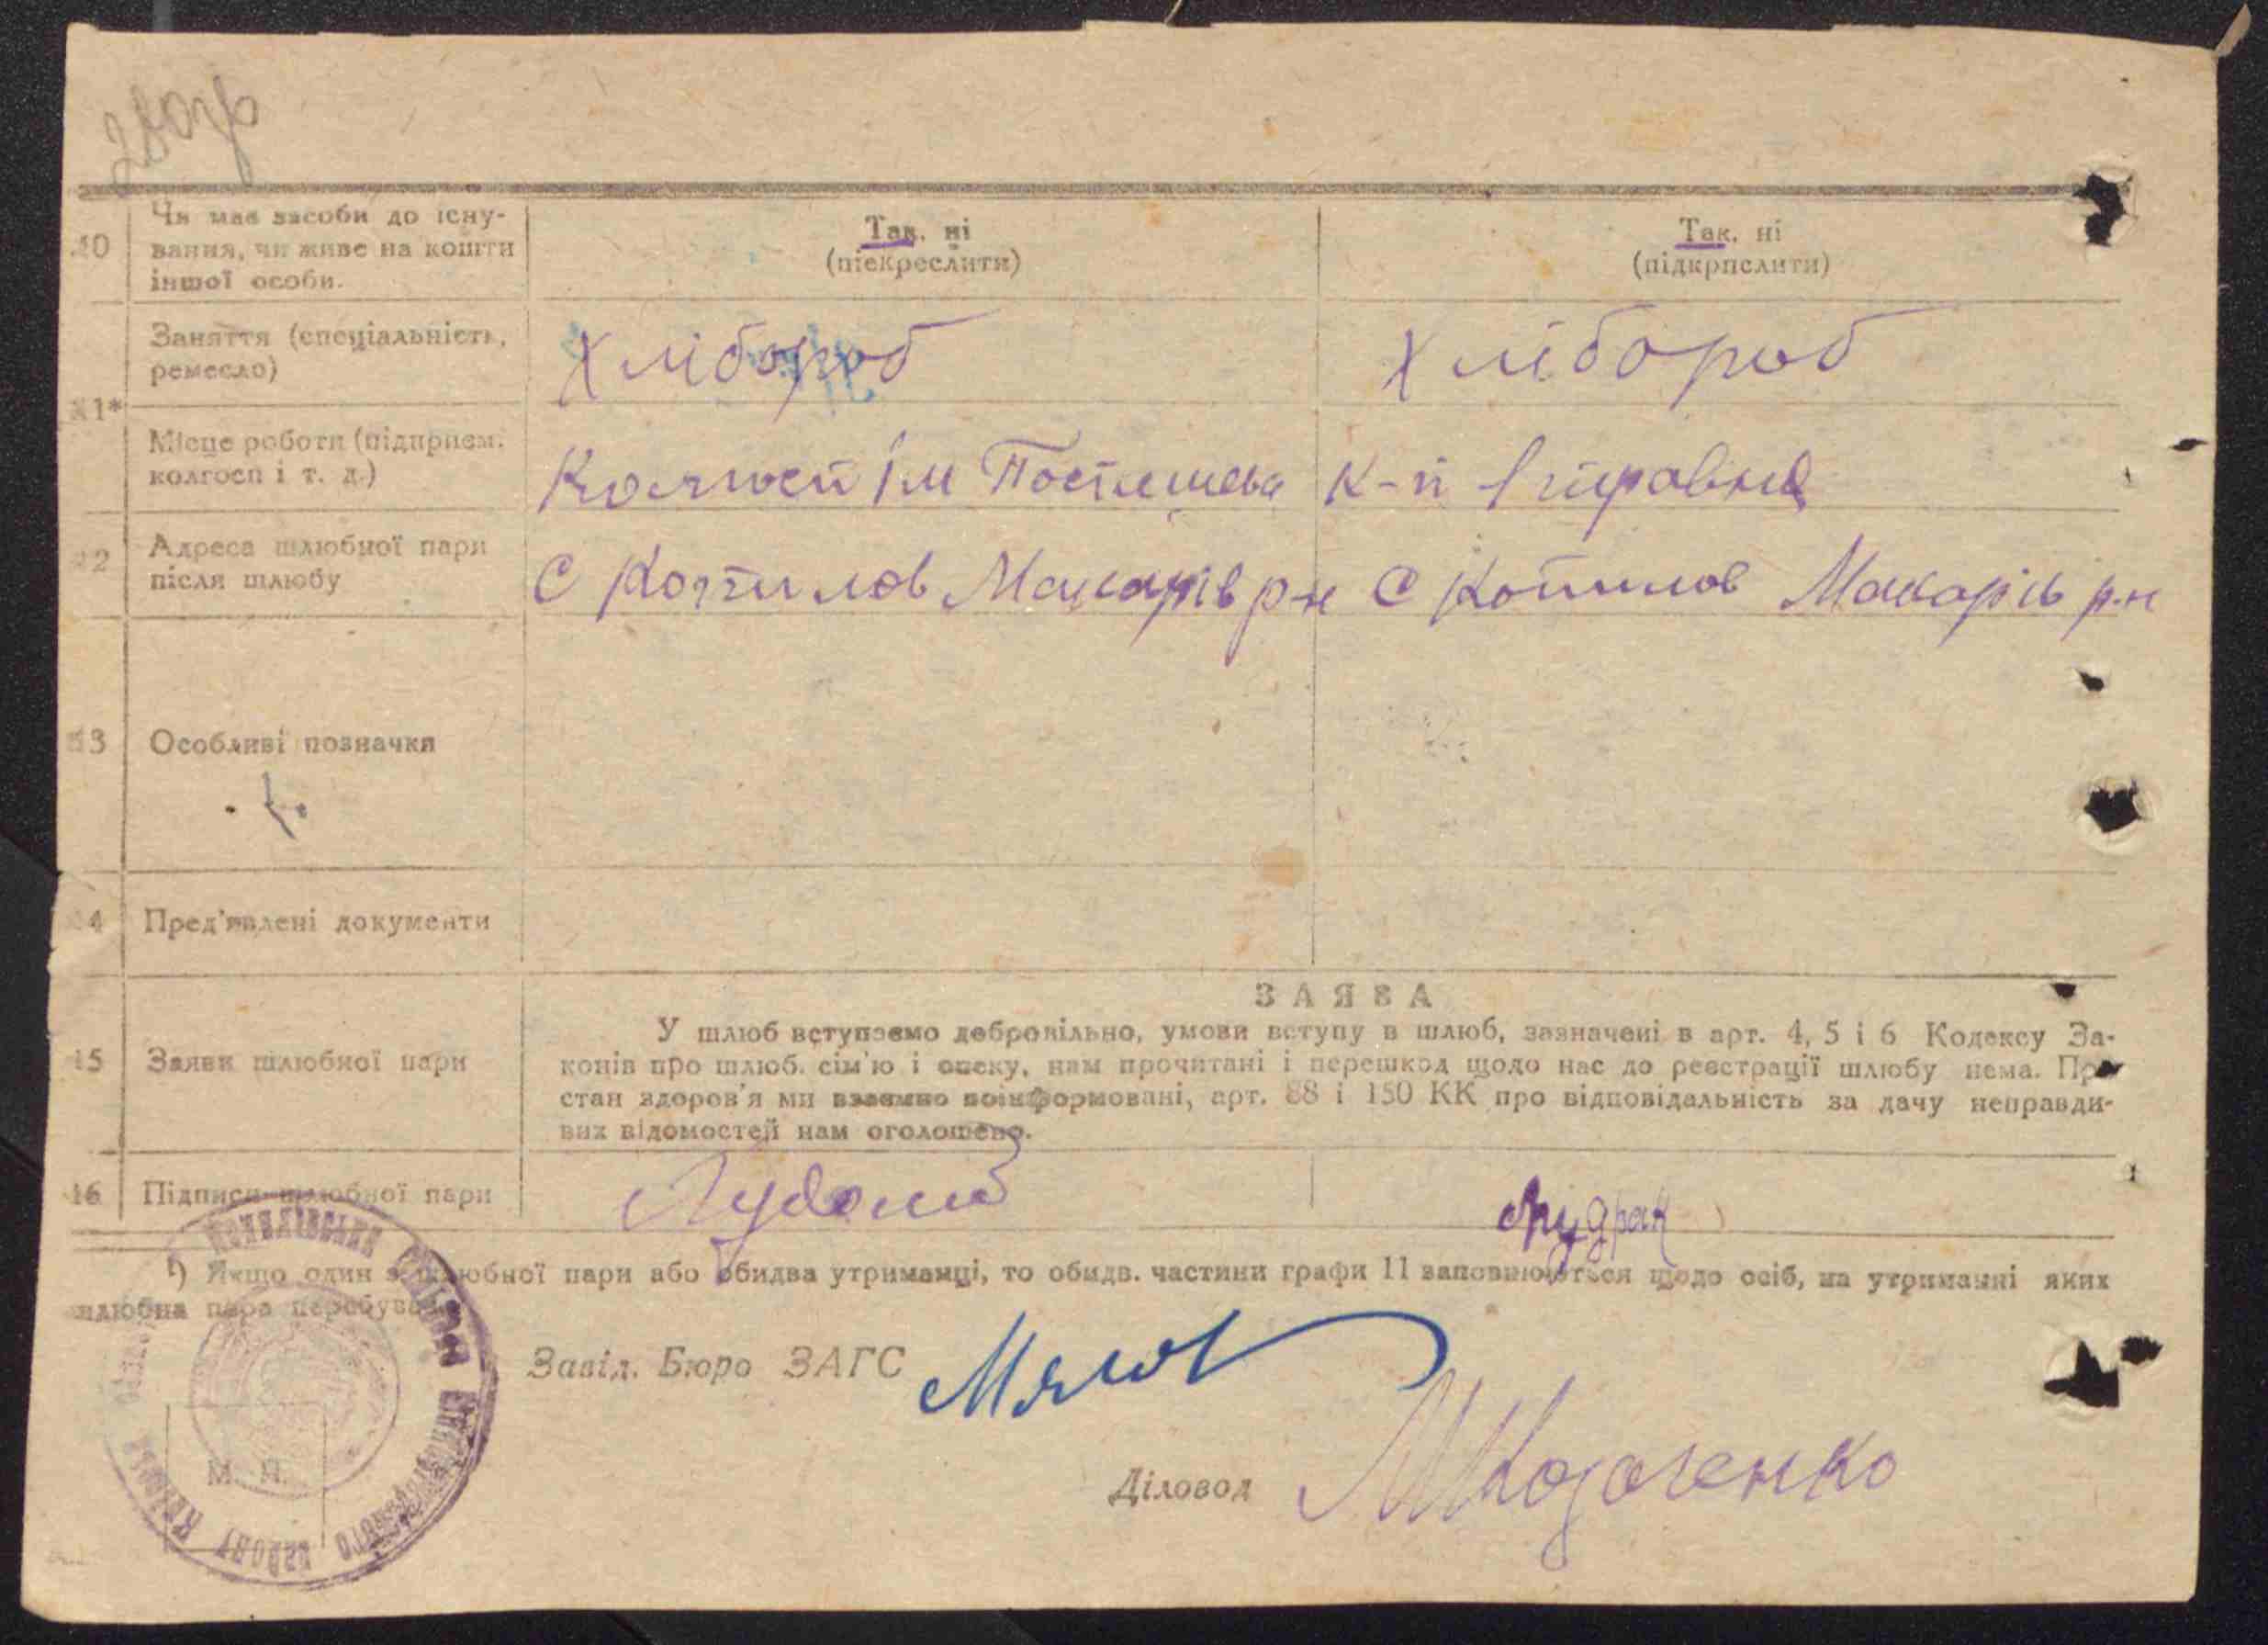 10 Чи має засоби до існу-
вання, чи живе на кошти
іншої особи.
Так. ні
(піекреслити)
Так. ні
(підкрпслити)
11*
Заняття (спеціальність,
ремесло)
Хлібороб
Хлібороб
Місце роботи (підприєм.
колгосп і т. д.)
Колгосп Ім Постишева
к-п
12 Адреса шлюбної пари
після шлюбу
С Копилов Макарів р-н
С Копилов Макарів р-н
13 Особливі позначки
14 Пред'явлені документи
15 Заяви шлюбної пари
ЗАЯВА
У шлюб вступаємо добровільно, умови вступу в шлюб, зазначені в арт. 4, 5 і 6 Кодексу За-
конів про шлюб. сім'ю і опеку, нам прочитані і перешкод щодо нас до реєстрації шлюбу нема. Про
стан здоров'я ми взаємно поінформовані, арт. 88 і 150 КК про відповідальність за дачу неправди-
вих відомостей нам оголошено.
16 Підписи шлюбної пари
¹) Якщо один з шлюбної пари або обидва утриманці, то обидв. частини графи 11 заповнюються щодо осіб, на утриманні яких
шлюбна пара перебуває
Завід. Бюро ЗАГС
М. П.
Діловод